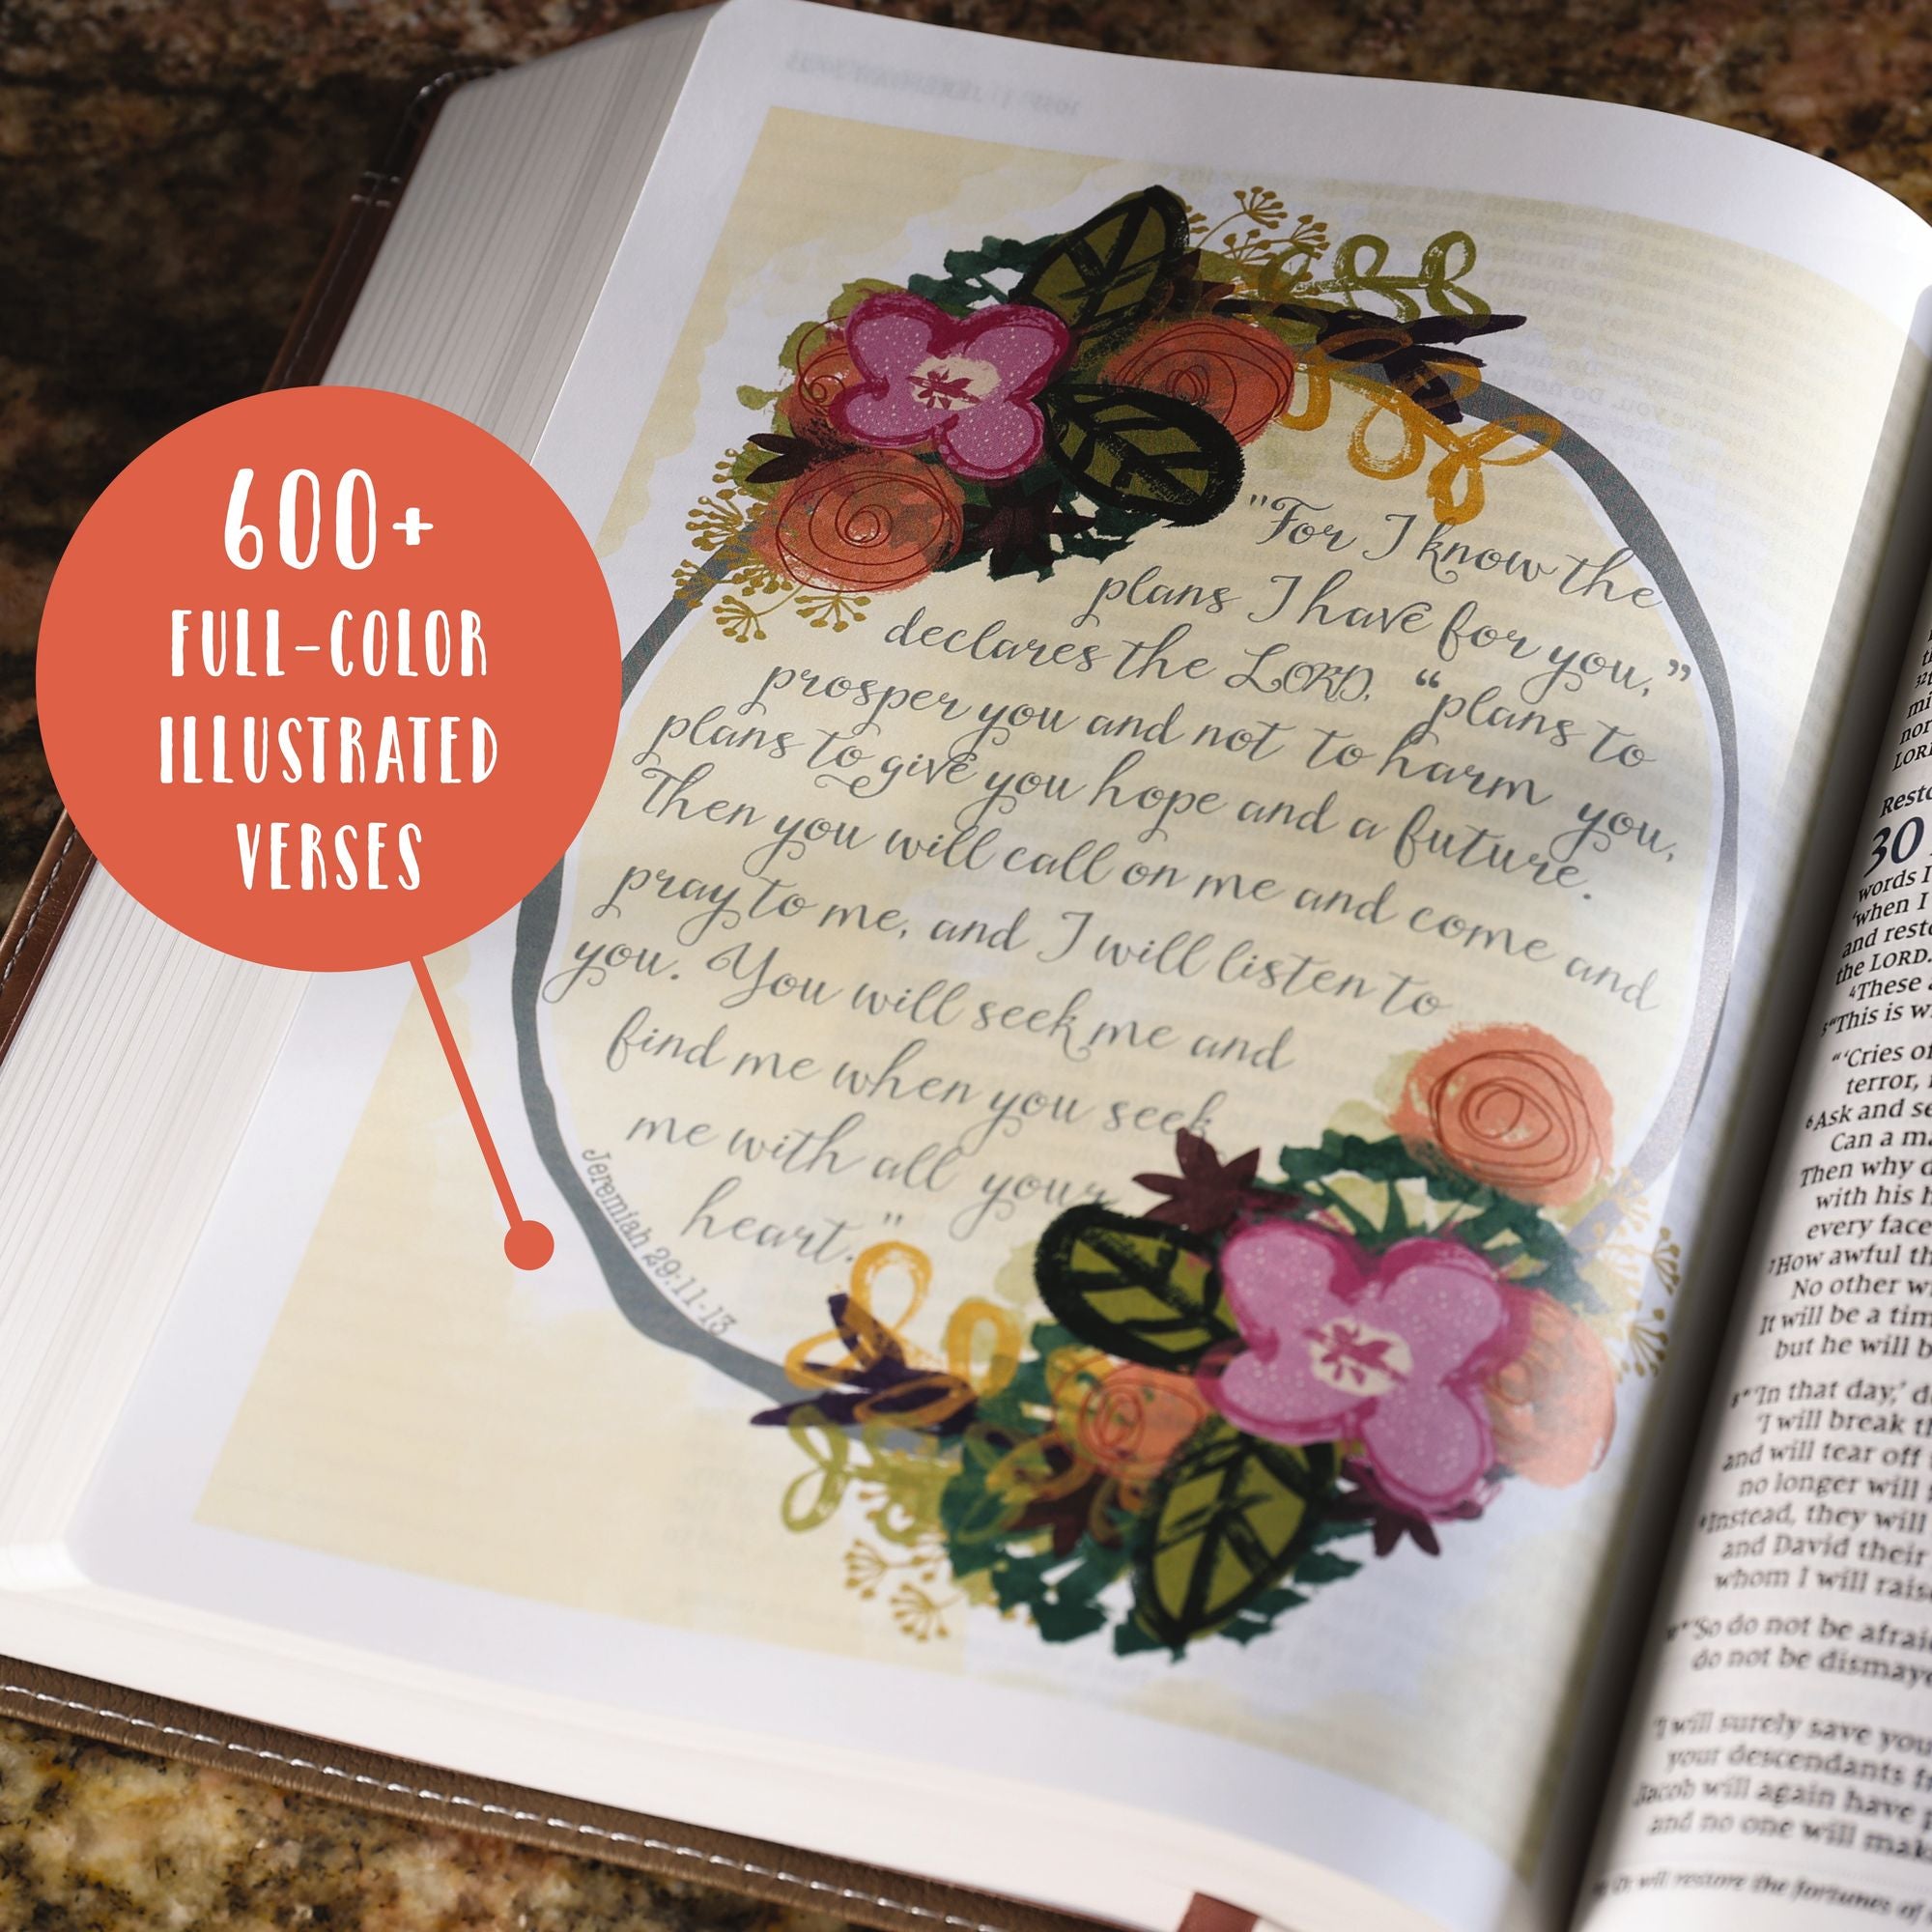 600+
FULL-COLOR
ILLUSTRATED
VERSES
"For I know the
plans I have for you,"
declares the LORD, "plans to
prosper you and not to harm you,
plans to give you hope and a future.
Then you will call on me and come and
pray to me, and I will listen to
you. You will seek me and
find me when you seek
me with all your
heart."
Jeremiah 29:11-13
30
words I
'when I
and
the LORD.
4These
5"This is
"'Cries of
terror,
6Ask and
Can a
Then why
with his
every face
7How awful
No other
It will be a
but he will
8"'In that day,'
'I will break
and will tear off
no longer will
9Instead, they will
and David their
whom I will
10"'So do not be
do not be
'I will surely save
your descendants
Jacob will again have
and no one will
will restore the fortunes of